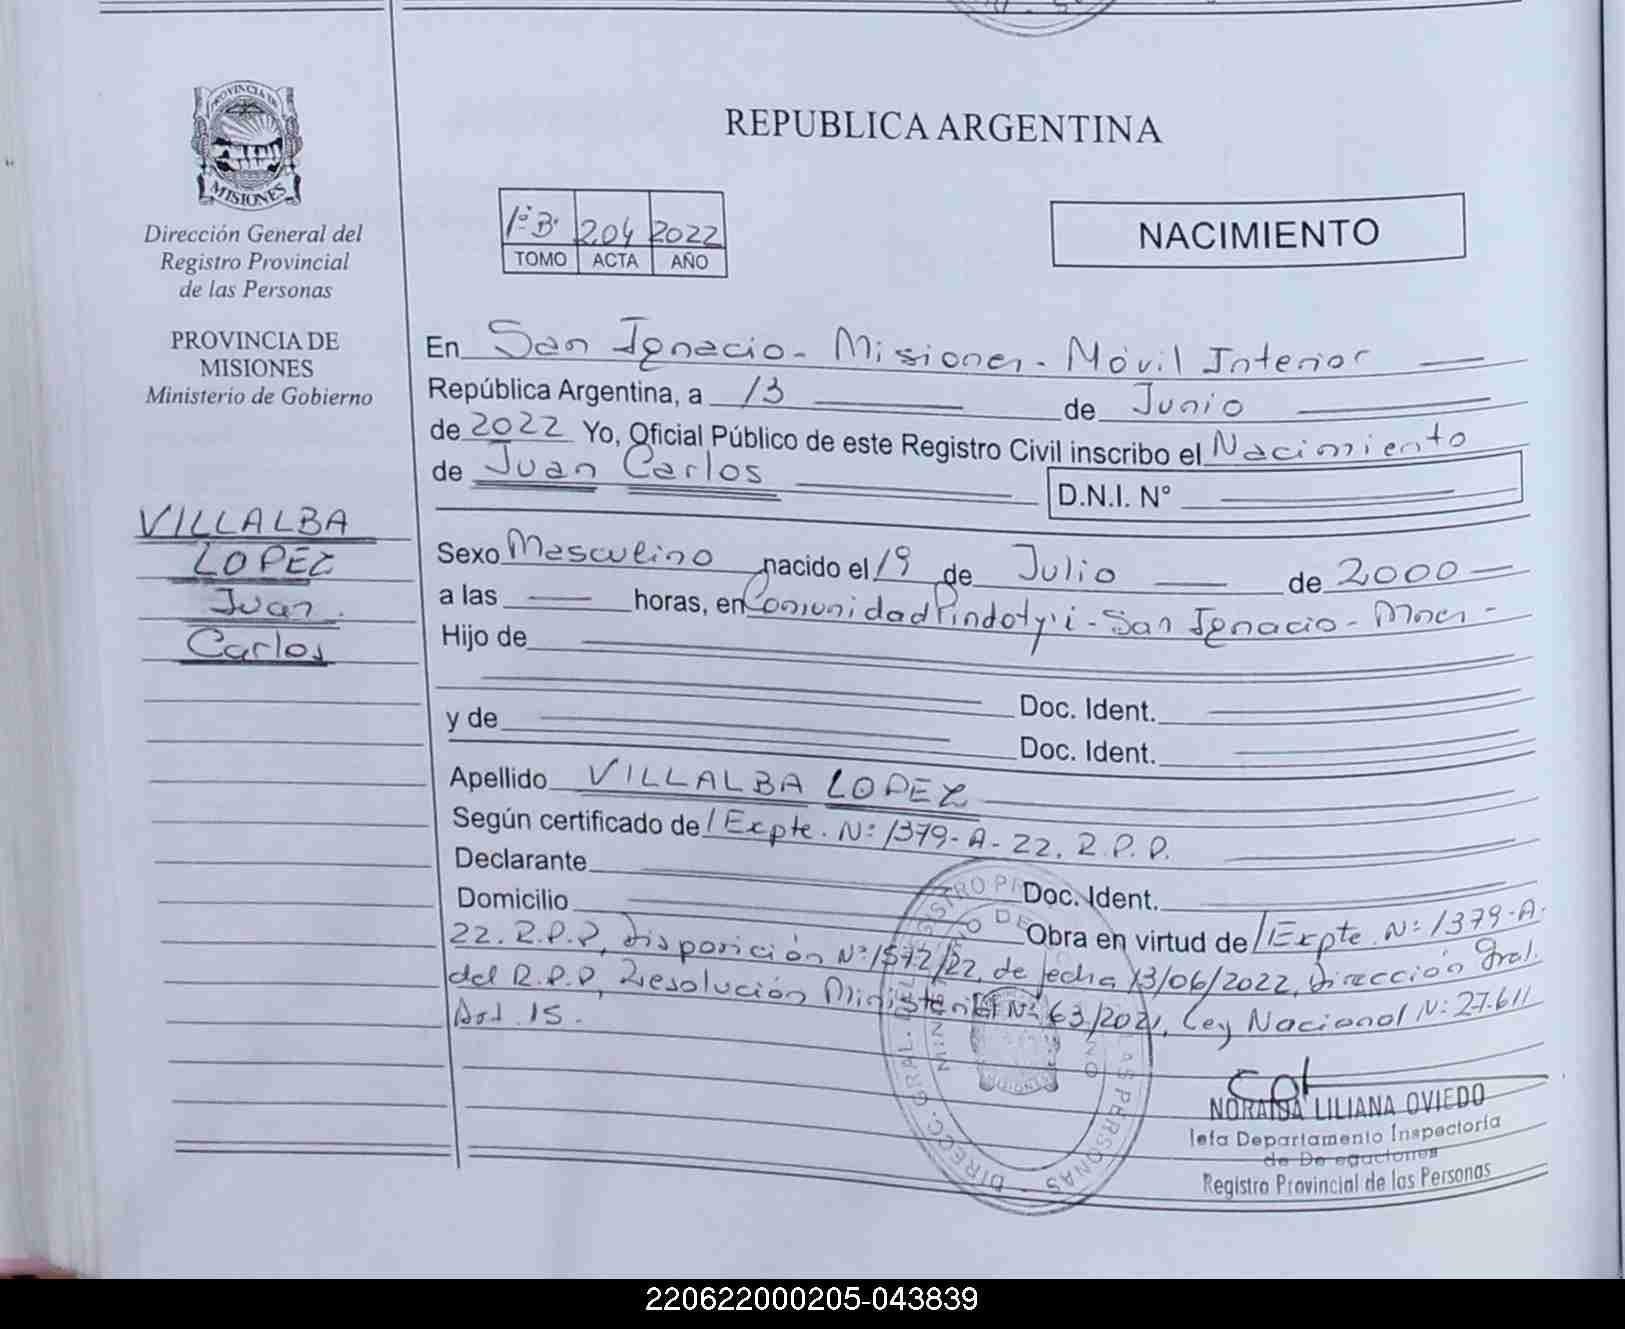 REPUBLICA ARGENTINA
PROVINCIA DE
MISIONES
Dirección General del
Registro Provincial
de las Personas
PROVINCIA DE
MISIONES
Ministerio de Gobierno
VILLALBA
LOPEZ
Juan
Carlos
1º B. 204 2022
TOMO ACTA AÑO
NACIMIENTO
En San Ignacio - Misiones - Móvil Interior
República Argentina, a 13 de Junio
de 2022 Yo, Oficial Público de este Registro Civil inscribo el Nacimiento
de Juan Carlos D.N.I. N°
Sexo Masculino nacido el 19 de Julio de 2000
a las horas, en Comunidad Pindoty'i - San Ignacio - Mnes -
Hijo de
Doc. Ident.
y de
Doc. Ident.
Apellido VILLALBA LOPEZ
Según certificado de / Expte. Nº 1379-A-22. R.P.P.
Declarante Doc. Ident.
Domicilio
Obra en virtud de / Expte. Nº 1379-A-
22. R.P.P, Disposición Nº 1572/22, de fecha 13/06/2022, Dirección Gral.
del R.P.P, Resolución Ministerial Nº 63/2021, Ley Nacional Nº 27.611
Art. 15.
DIRECC. GRAL. DEL REGISTRO PR LAS PERSONAS
NORAISA LILIANA OVIEDO
Jefa Departamento Inspectoría
de Delegaciones
Registro Provincial de las Personas
220622000205-043839